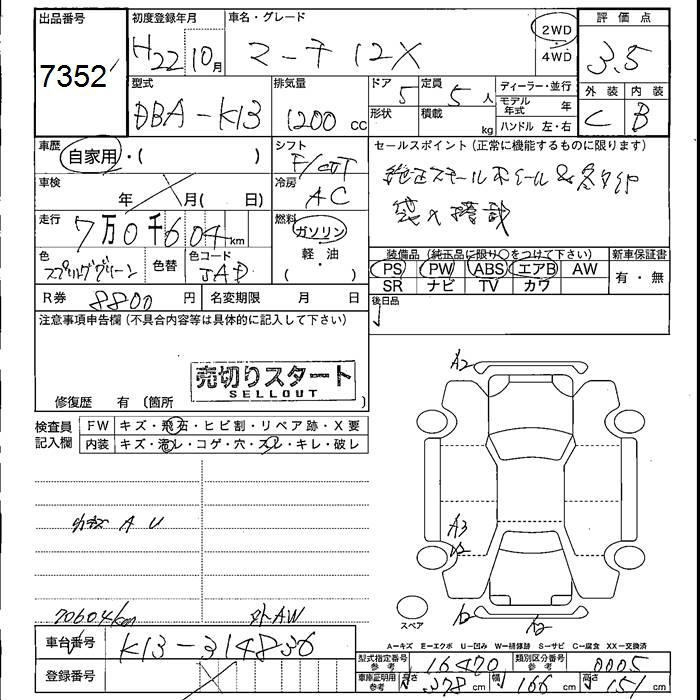 出品番号 7352
初度登録年月 H22 10月
車名・グレード マーチ 12X
2WD・4WD
評価点 3.5
型式 DBA-K13
排気量 1200 cc
ドア 5
形状
定員 5人
積載 kg
ディーラー・並行
モデル年式 年
ハンドル 左・右
外装 C
内装 B
車歴 自家用・( )
シフト F/
車検 年 月( 日)
冷房 AC
走行 7万0千604km
燃料 ガソリン・軽・油・( )
色 スプリンググリーン
色替
色コード JAD
R券 8800円
名変期限 月 日
セールスポイント(正常に機能するものに限ります)
純正スチールホイール&冬タイヤ
積
装備品(純正品に限り○をつけて下さい)
PS PW ABS エアB AW
SR ナビ TV カワ
新車保証書 有・無
後日品
注意事項申告欄(不具合内容等は具体的に記入して下さい)
売切りスタート
SELLOUT
修復歴 有(箇所
検査員記入欄
FW キズ・飛石・ヒビ割・リペア跡・X要
内装 キズ・汚レ・コゲ・穴・スレ・キレ・破レ
小キズ A U
70604km
外AW
A2
A3
A2
A2
スペア
A=キズ E=エクボ U=凹み W=補修跡 S=サビ C=腐食 XX=交換済
車台番号 K13-314836
登録番号
型式指定番号 参考 16470
類別区分番号 参考 0005
車庫証明用 参考 長さ 378cm 幅 166cm 高さ 151cm